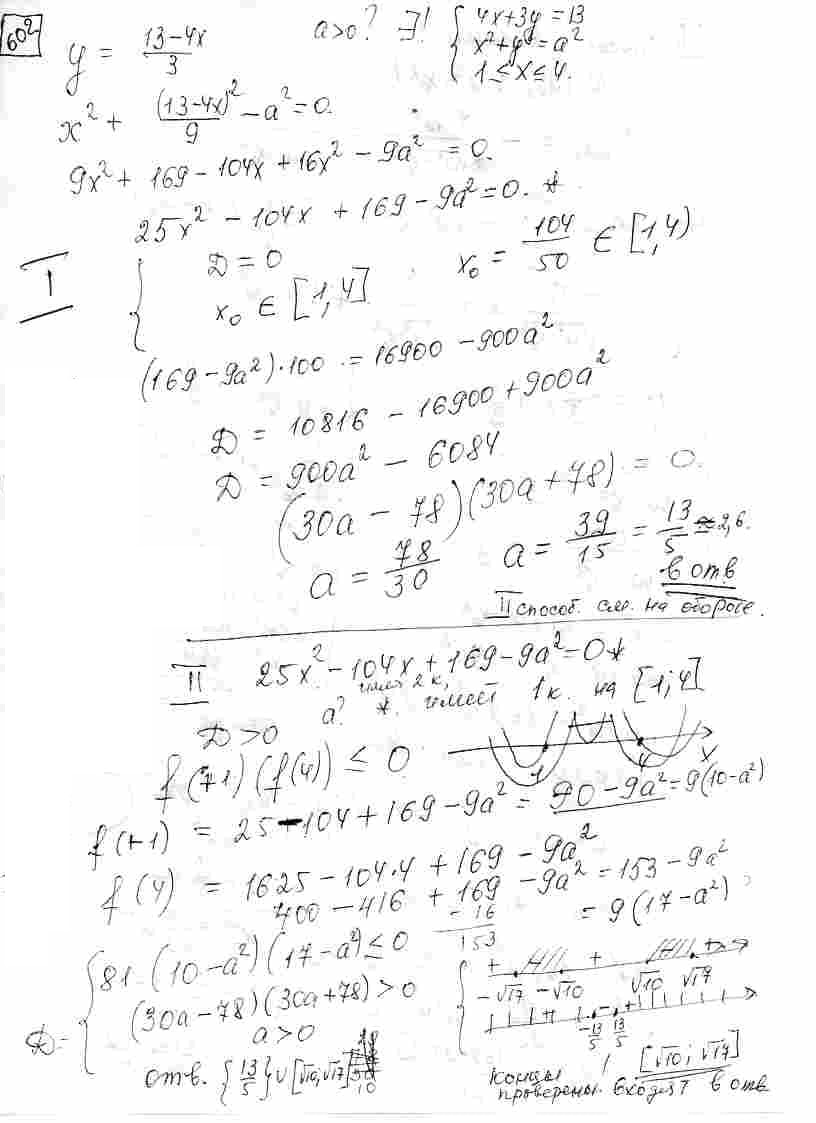 602
y = (13-4x)/3
a>0? ∃! { 4x+3y=13
x²+y²=a²
1≤x≤4.
x² + (13-4x)²/9 - a² = 0.
9x² + 169 - 104x + 16x² - 9a² = 0.
25x² - 104x + 169 - 9a² = 0. *
I { D = 0
x₀ ∈ [1; 4]
x₀ = 104/50 ∈ [1, 4)
(169 - 9a²)·100 = 16900 - 900a²
D = 10816 - 16900 + 900a²
D = 900a² - 6084
(30a - 78)(30a + 78) = 0.
a = 78/30 a = 39/15 = 13/5 ≈ 2,6.
в отв
II способ. см. на обороте.
II 25x² - 104x + 169 - 9a² = 0 *
имеет 2 к,
a? *. имеет 1 к. на [1; 4]
D > 0
f(+1)(f(4)) ≤ 0
1 4 x
f(+1) = 25 - 104 + 169 - 9a² = 90 - 9a² = 9(10 - a²)
f(4) = 16·25 - 104·4 + 169 - 9a²
400 - 416 + 169 - 9a² = 153 - 9a²
- 16
153
= 9(17 - a²)
{ 81·(10 - a²)(17 - a²) ≤ 0
(30a - 78)(30a + 78) > 0
a > 0
+ + +
-√17 -√10 √10 √17
+ - +
-13/5 13/5
отв. {13/5} ∪ [√10; √17]
10
[√10; √17]
Концы проверены. Входят в отв